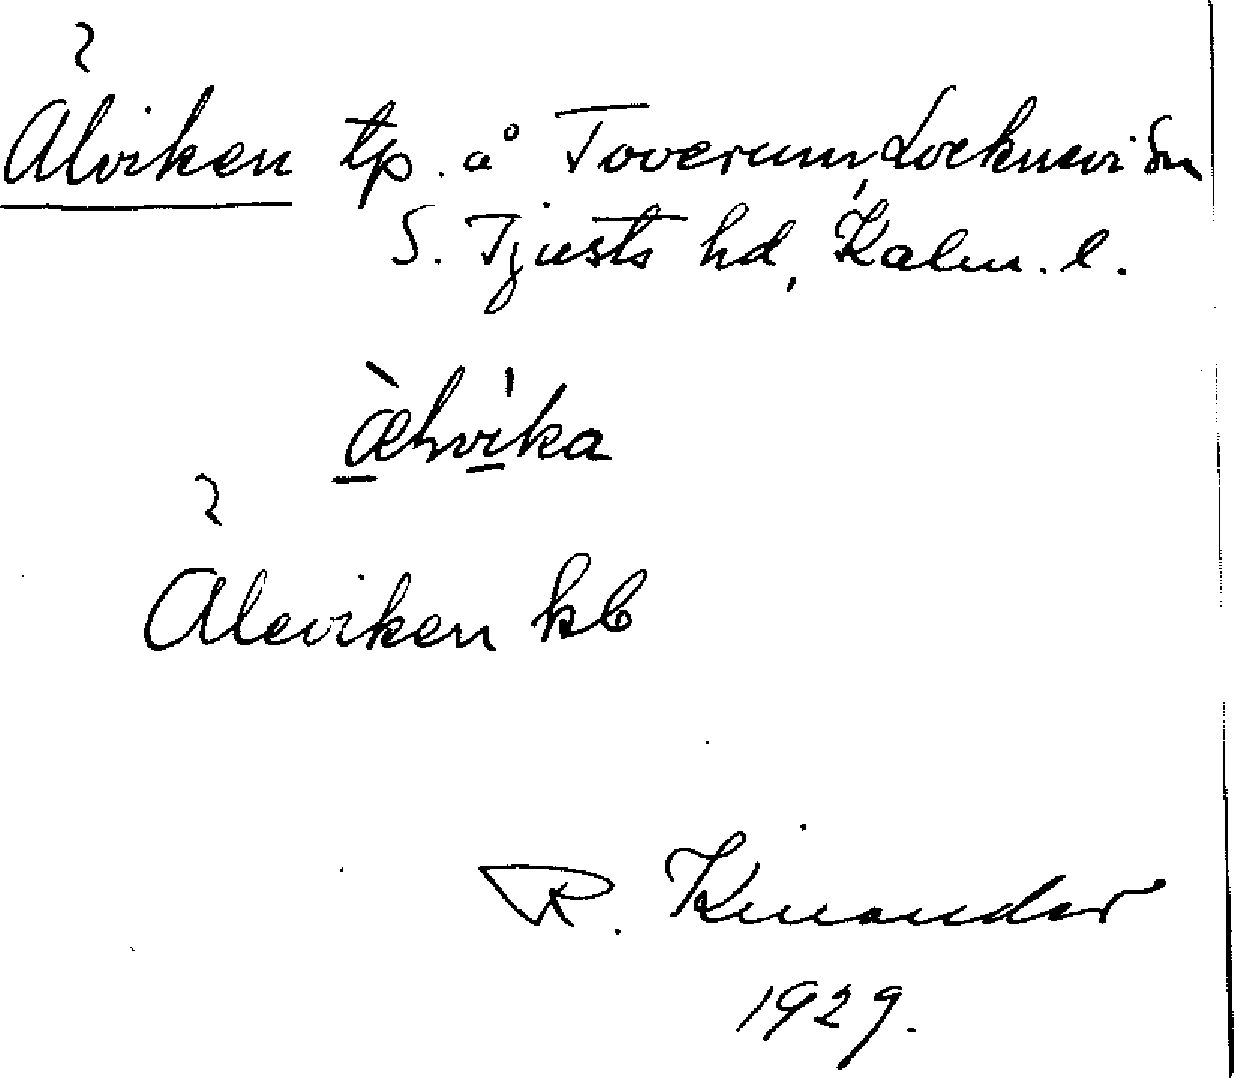 Älviken tp. å Toverum, Locknevi sn
S. Tjusts hd, Kalm. l.
æ̀lvika
Äleviken kb
R. Kinander
1929.